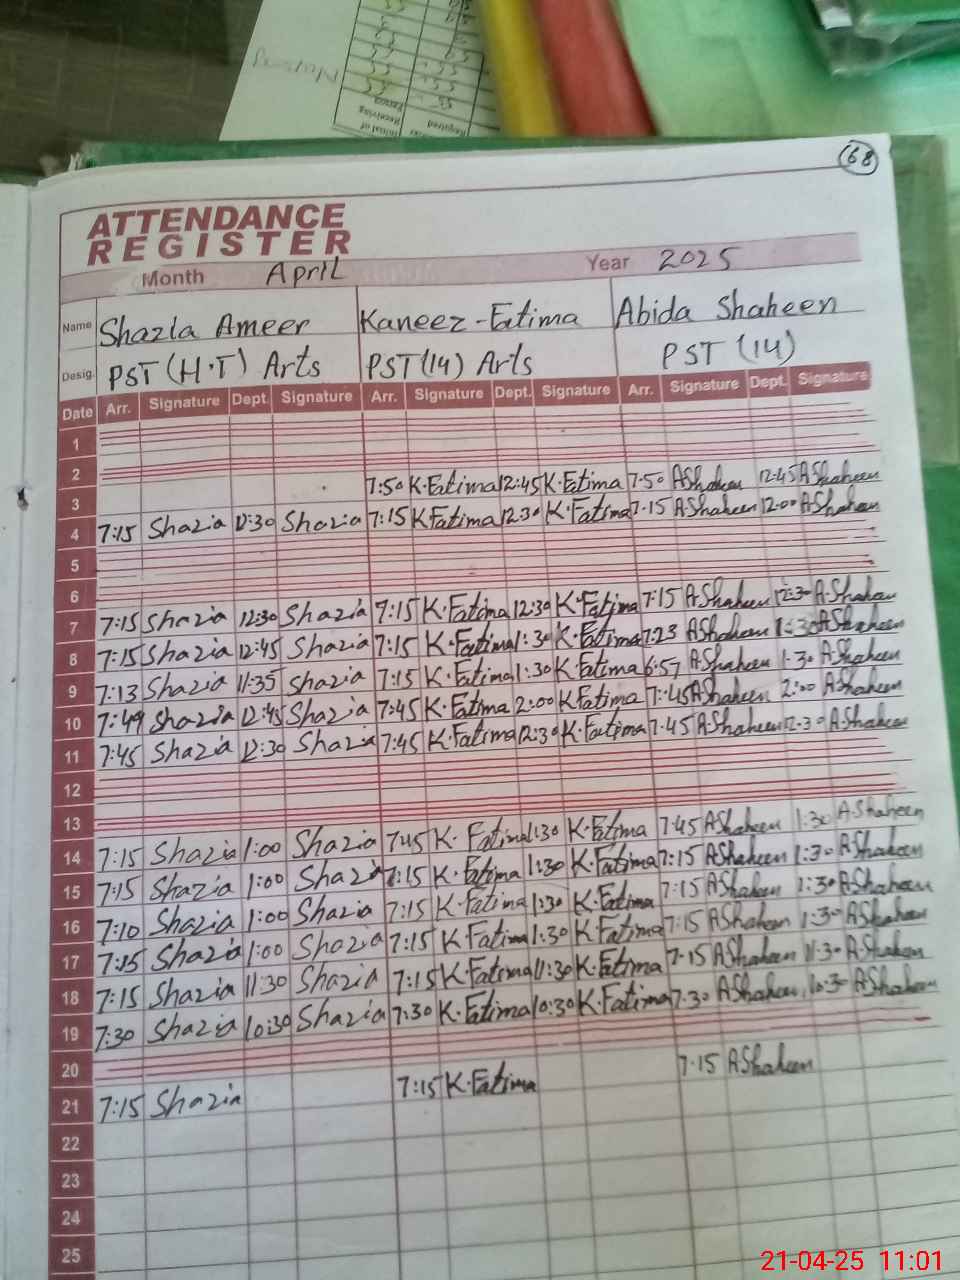 Receiving
Required
68
ATTENDANCE
REGISTER
Month April Year 2025
Name Shazia Ameer Kaneez-Fatima Abida Shaheen
Desig. PST (H.T) Arts PST (14) Arts PST (14)
Date Arr. Signature Dept. Signature Arr. Signature Dept. Signature Arr. Signature Dept. Signature
1
2
3 7:50 K.Fatima 12:45 K.Fatima 7.50 AShaheen 12.45 AShaheen
4 7:15 Shazia 12:30 Shazia 7:15 K Fatima 1230 K.Fatima 7.15 AShaheen 12.00 AShaheen
5
6
7 7:15 Shazia 12:30 Shazia 7:15 K.Fatima 12:30 K.Fatima 7:15 A.Shaheen 12:30 A.Shaheen
8 7:15 Shazia 12:45 Shazia 7:15 K.Fatima 1:30 K.Fatima 7:23 AShaheen 1:30 AShaheen
9 7:13 Shazia 11:35 Shazia 7:15 K.Fatima 1:30 K.Fatima 6:57 AShaheen 1.30 AShaheen
10 7:49 Shazia 12:45 Shazia 7:45 K.Fatima 2:00 K Fatima 7:45 AShaheen 2:00 AShaheen
11 7:45 Shazia 12:30 Shazia 7:45 K.Fatima 12:30 K.Fatima 7.45 AShaheen 12.30 AShaheen
12
13
14 7:15 Shazia 1:00 Shazia 7:45 K.Fatima 1:30 K.Fatima 7:45 AShaheen 1:30 A.Shaheen
15 7:15 Shazia 1:00 Shazia 7:15 K.Fatima 1:30 K.Fatima 7:15 AShaheen 1:30 AShaheen
16 7:10 Shazia 1:00 Shazia 7:15 K.Fatima 1:30 K.Fatima 7:15 AShaheen 1:30 AShaheen
17 7:15 Shazia 1:00 Shazia 7:15 K Fatima 1:30 K Fatima 7.15 AShaheen 1:30 AShaheen
18 7:15 Shazia 11:30 Shazia 7:15 K.Fatima 11:30 K.Fatima 7.15 AShaheen 11:30 A.Shaheen
19 7:30 Shazia 10:30 Shazia 7:30 K.Fatima 10:30 K.Fatima 7.30 AShaheen 10:30 AShaheen
20
21 7:15 Shazia 7:15 K.Fatima 7.15 AShaheen
22
23
24
25
21-04-25 11:01